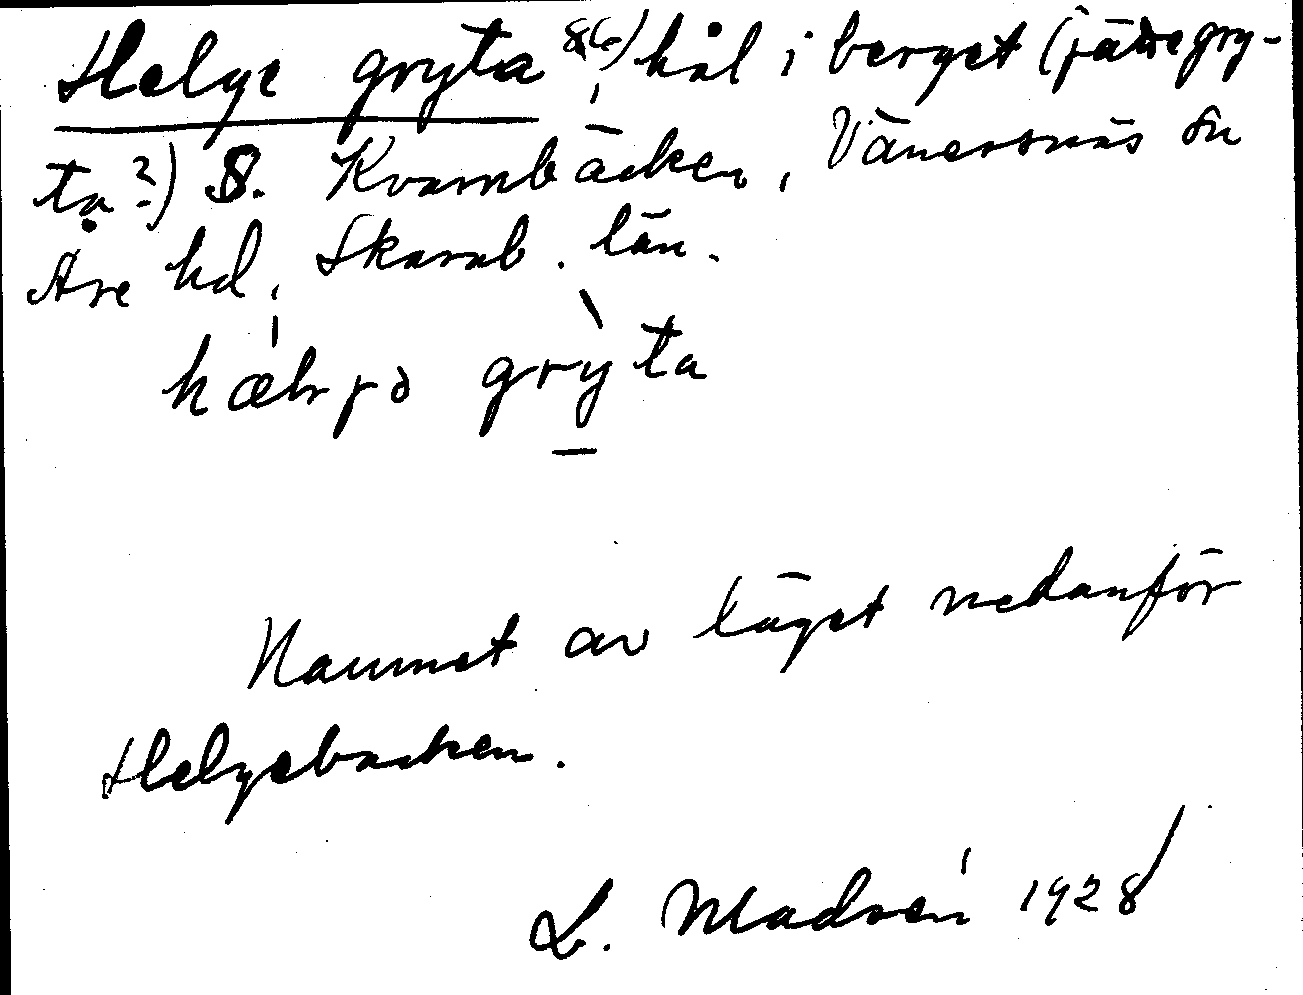 Helge gryta 86), hål i berget (jättegry-
ta?) S. Kvarnbäcken, Vänersnäs sn
Åse hd, Skarab. län.
grỳ̱ta
Namnet av läget nedanför
Helgebacken.
L. Madsén 1928